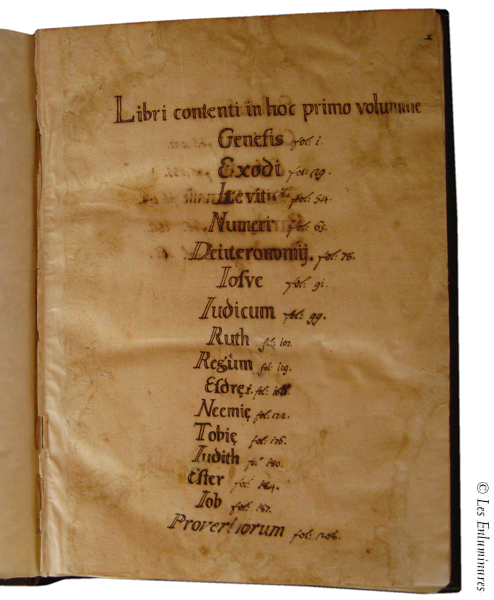 Libri contenti in hoc primo volumine
Genesis fol: 1.
Exodi fol: 29.
Levitici fol: 54.
Numeri fol: 63.
Deuteronomij. fol: 78.
Iosve fol: 91.
Iudicum fol: 99.
Ruth fol: 107.
Regum fol: 109.
Esdrę fol:
Neemię fol: 172.
Tobię fol: 176.
Iudith fo: 180.
Ester fol: 184.
Iob fol: 187.
Proverbiorum fol: 208.
© Les Enluminures